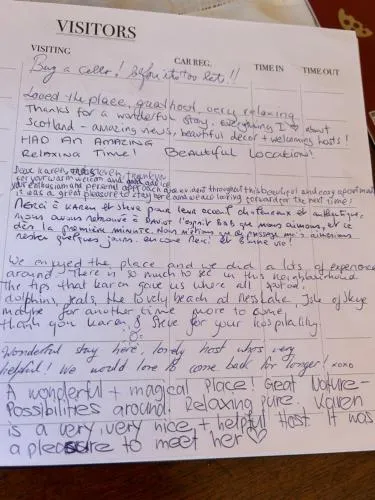 VISITORS
VISITING CAR REG. TIME IN TIME OUT
Buy a caller! before it's too late!!
Loved the place, great host, very relaxing
Thanks for a wonderful stay. Everything I ♥ about
Scotland - amazing views, beautiful decor + welcoming hosts!
HAD AN AMAZING
RELAXING TIME! BEAUTIFUL LOCATION!
Dear Karen,
for your warm welcome and
your enthusiasm and personal approach are evident throughout this beautiful and cosy apartment
it was a great pleasure to stay here and we are looking forward for the next time!
Merci à Karen et Steve pour leur accueil chaleureux et authentique,
nous avons retrouvé à l'esprit B&B que nous aimons, et ce
dès la première minute. Nous n'étions que de passage mais aimerions
rester quelques jours. encore Merci et bonne vie!
We enjoyed the place and we did a lots of experience
around. There is so much to see in this neighborhood
The tips that Karen gave us where all
dolphins, seals, the lovely beach at Ness Lake, Isle of Skye
maybe for another time more to come
thank you Karen & Steve for your hospitality.
Wonderful stay here, lovely host who's very
helpful! We would love to come back for longer! xoxo
A wonderful + magical Place! Great Nature-
Possibilities around. Relaxing pure. Karen
is a very, very nice + helpful Host. It was
a pleasure to meet her ♡